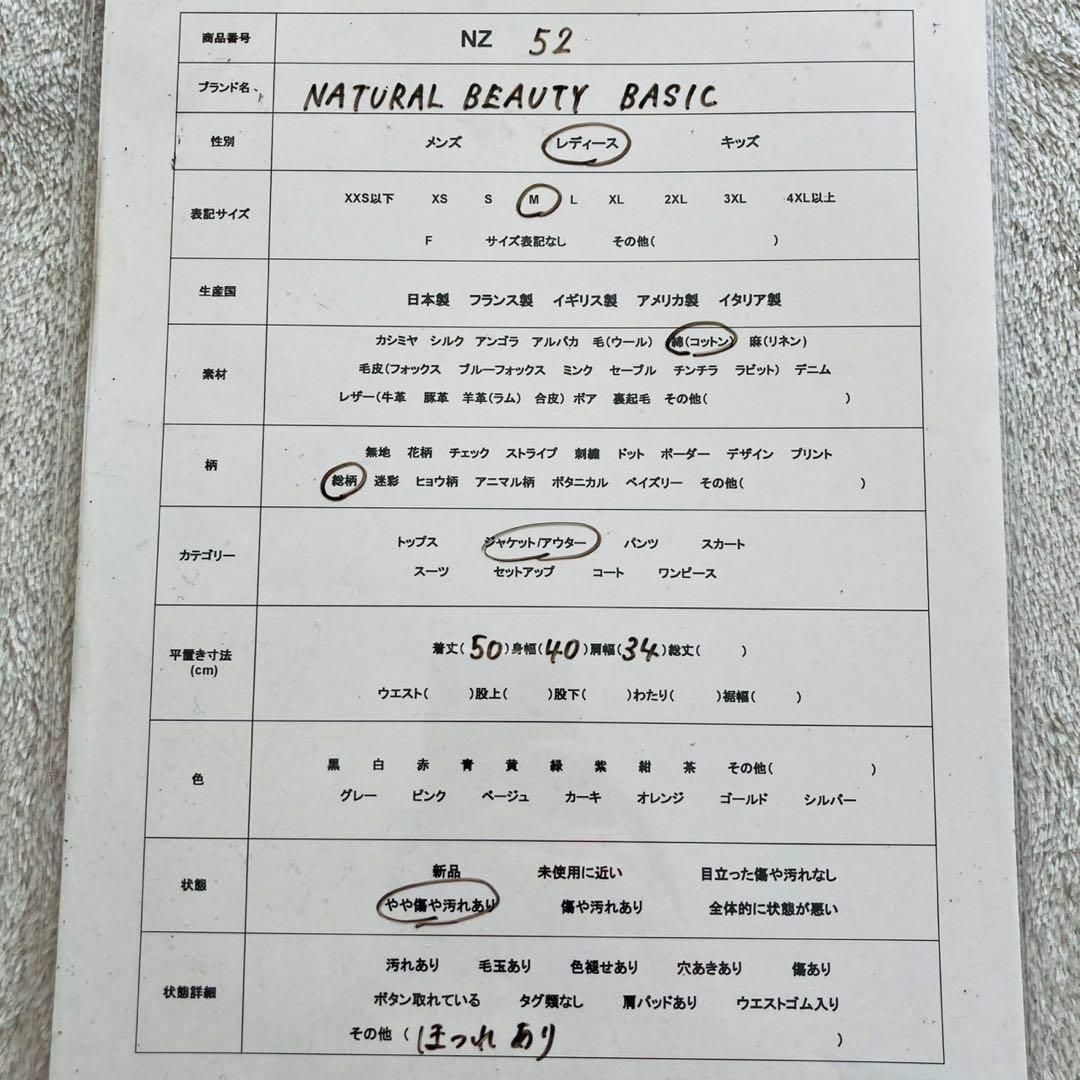 商品番号 NZ 52
ブランド名 NATURAL BEAUTY BASIC
性別 メンズ レディース キッズ
表記サイズ XXS以下 XS S M L XL 2XL 3XL 4XL以上
F サイズ表記なし その他( )
生産国 日本製 フランス製 イギリス製 アメリカ製 イタリア製
素材 カシミヤ シルク アンゴラ アルパカ 毛(ウール) 綿(コットン) 麻(リネン)
毛皮(フォックス ブルーフォックス ミンク セーブル チンチラ ラビット) デニム
レザー(牛革 豚革 羊革(ラム) 合皮) ボア 裏起毛 その他( )
柄 無地 花柄 チェック ストライプ 刺繍 ドット ボーダー デザイン プリント
総柄 迷彩 ヒョウ柄 アニマル柄 ボタニカル ペイズリー その他( )
カテゴリー トップス ジャケット/アウター パンツ スカート
スーツ セットアップ コート ワンピース
平置き寸法 (cm) 着丈(50)身幅(40)肩幅(34)総丈( )
ウエスト( )股上( )股下( )わたり( )裾幅( )
色 黒 白 赤 青 黄 緑 紫 紺 茶 その他( )
グレー ピンク ベージュ カーキ オレンジ ゴールド シルバー
状態 新品 未使用に近い 目立った傷や汚れなし
やや傷や汚れあり 傷や汚れあり 全体的に状態が悪い
状態詳細 汚れあり 毛玉あり 色褪せあり 穴あきあり 傷あり
ボタン取れている タグ類なし 肩パッドあり ウエストゴム入り
その他 (ほつれあり )